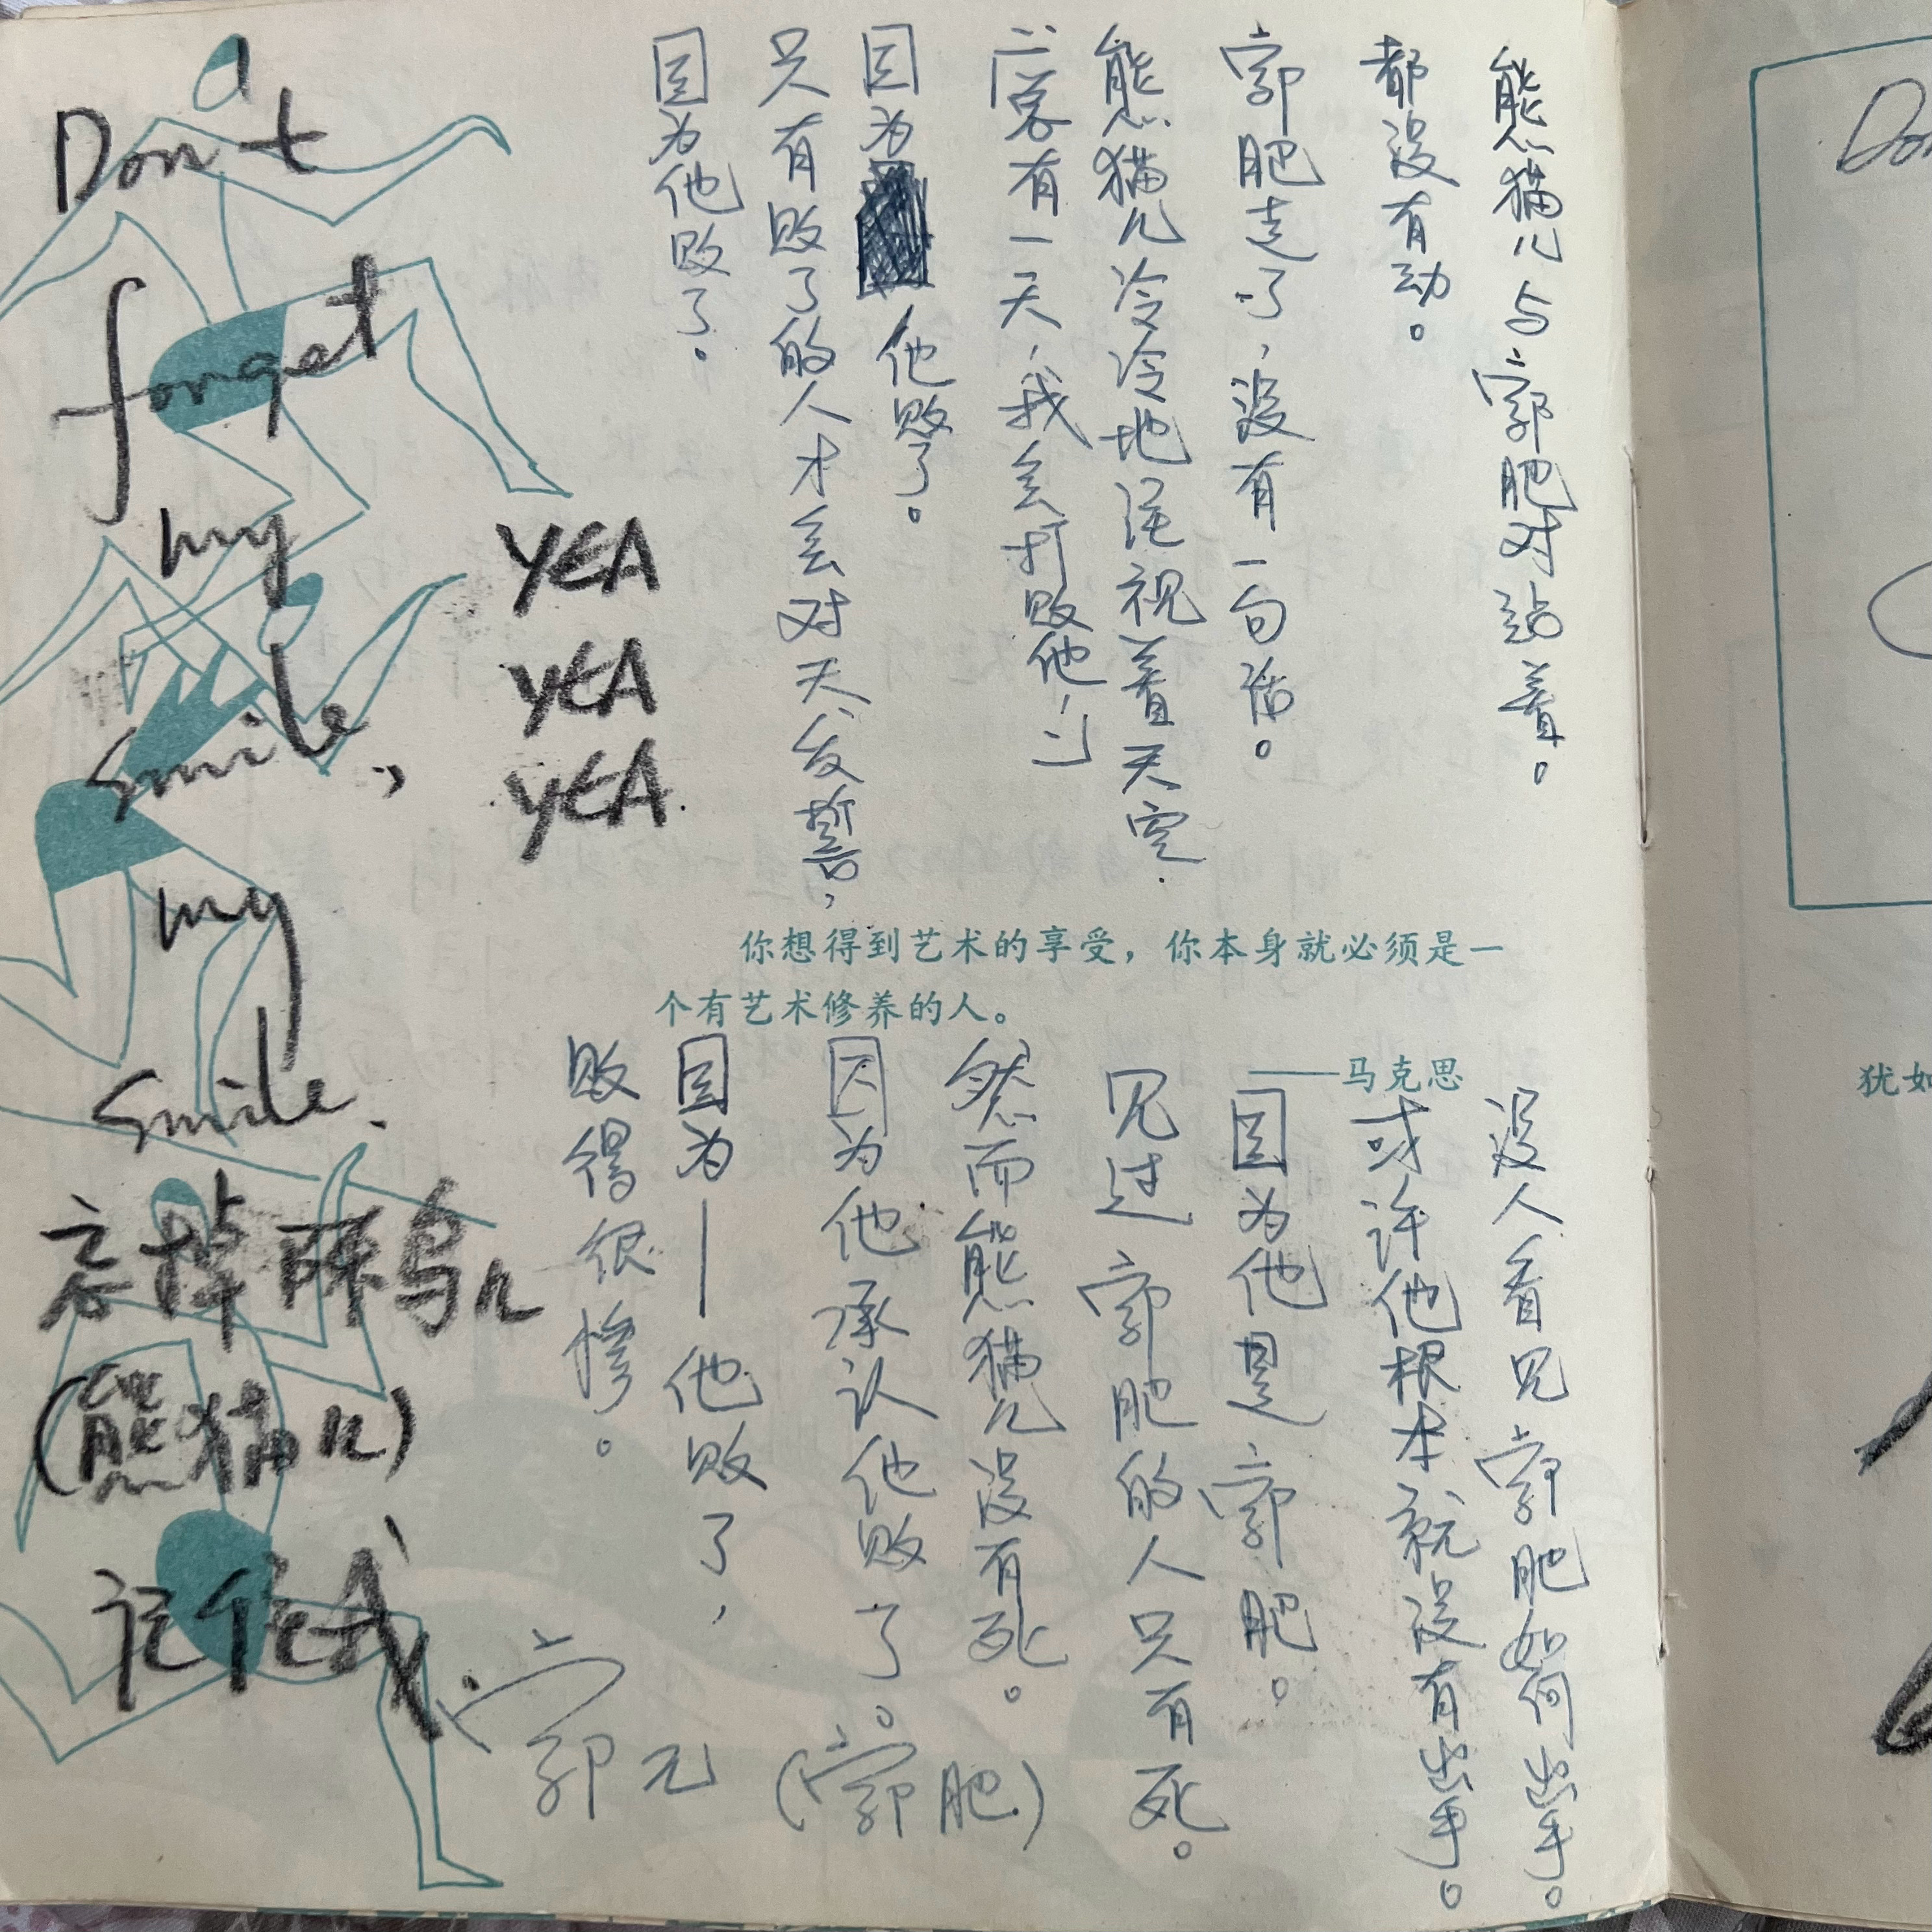 熊猫儿与郭肥对站着。
都没有动。
郭肥走了，没有一句话。
熊猫儿冷冷地视着天空.
“总有一天，我会打败他！”
因为他败了。
只有败了的人才会对天发誓，
因为他败了。
你想得到艺术的享受，你本身就必须是一
个有艺术修养的人。
——马克思
没人看见郭肥如何出手。
或许他根本就没有出手。
因为他是郭肥。
见过郭肥的人只有死。
然而熊猫儿没有死。
因为他承认他败了。
因为—他败了，
败得很惨。
郭元（郭肥）
Don't
forget
my
smile,
my
smile.
YEA
YEA
YEA.
忘掉
(熊猫儿)
记住
Don
犹如